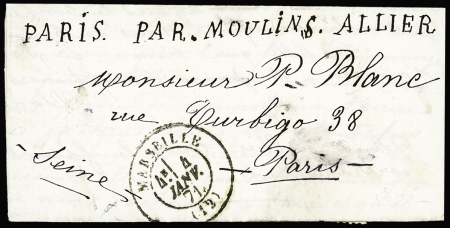 PARIS. PAR. MOULINS. ALLIER
Monsieur P. Blanc
rue Turbigo 38
Seine
Paris
MARSEILLE
4
JANV.
71
(12)